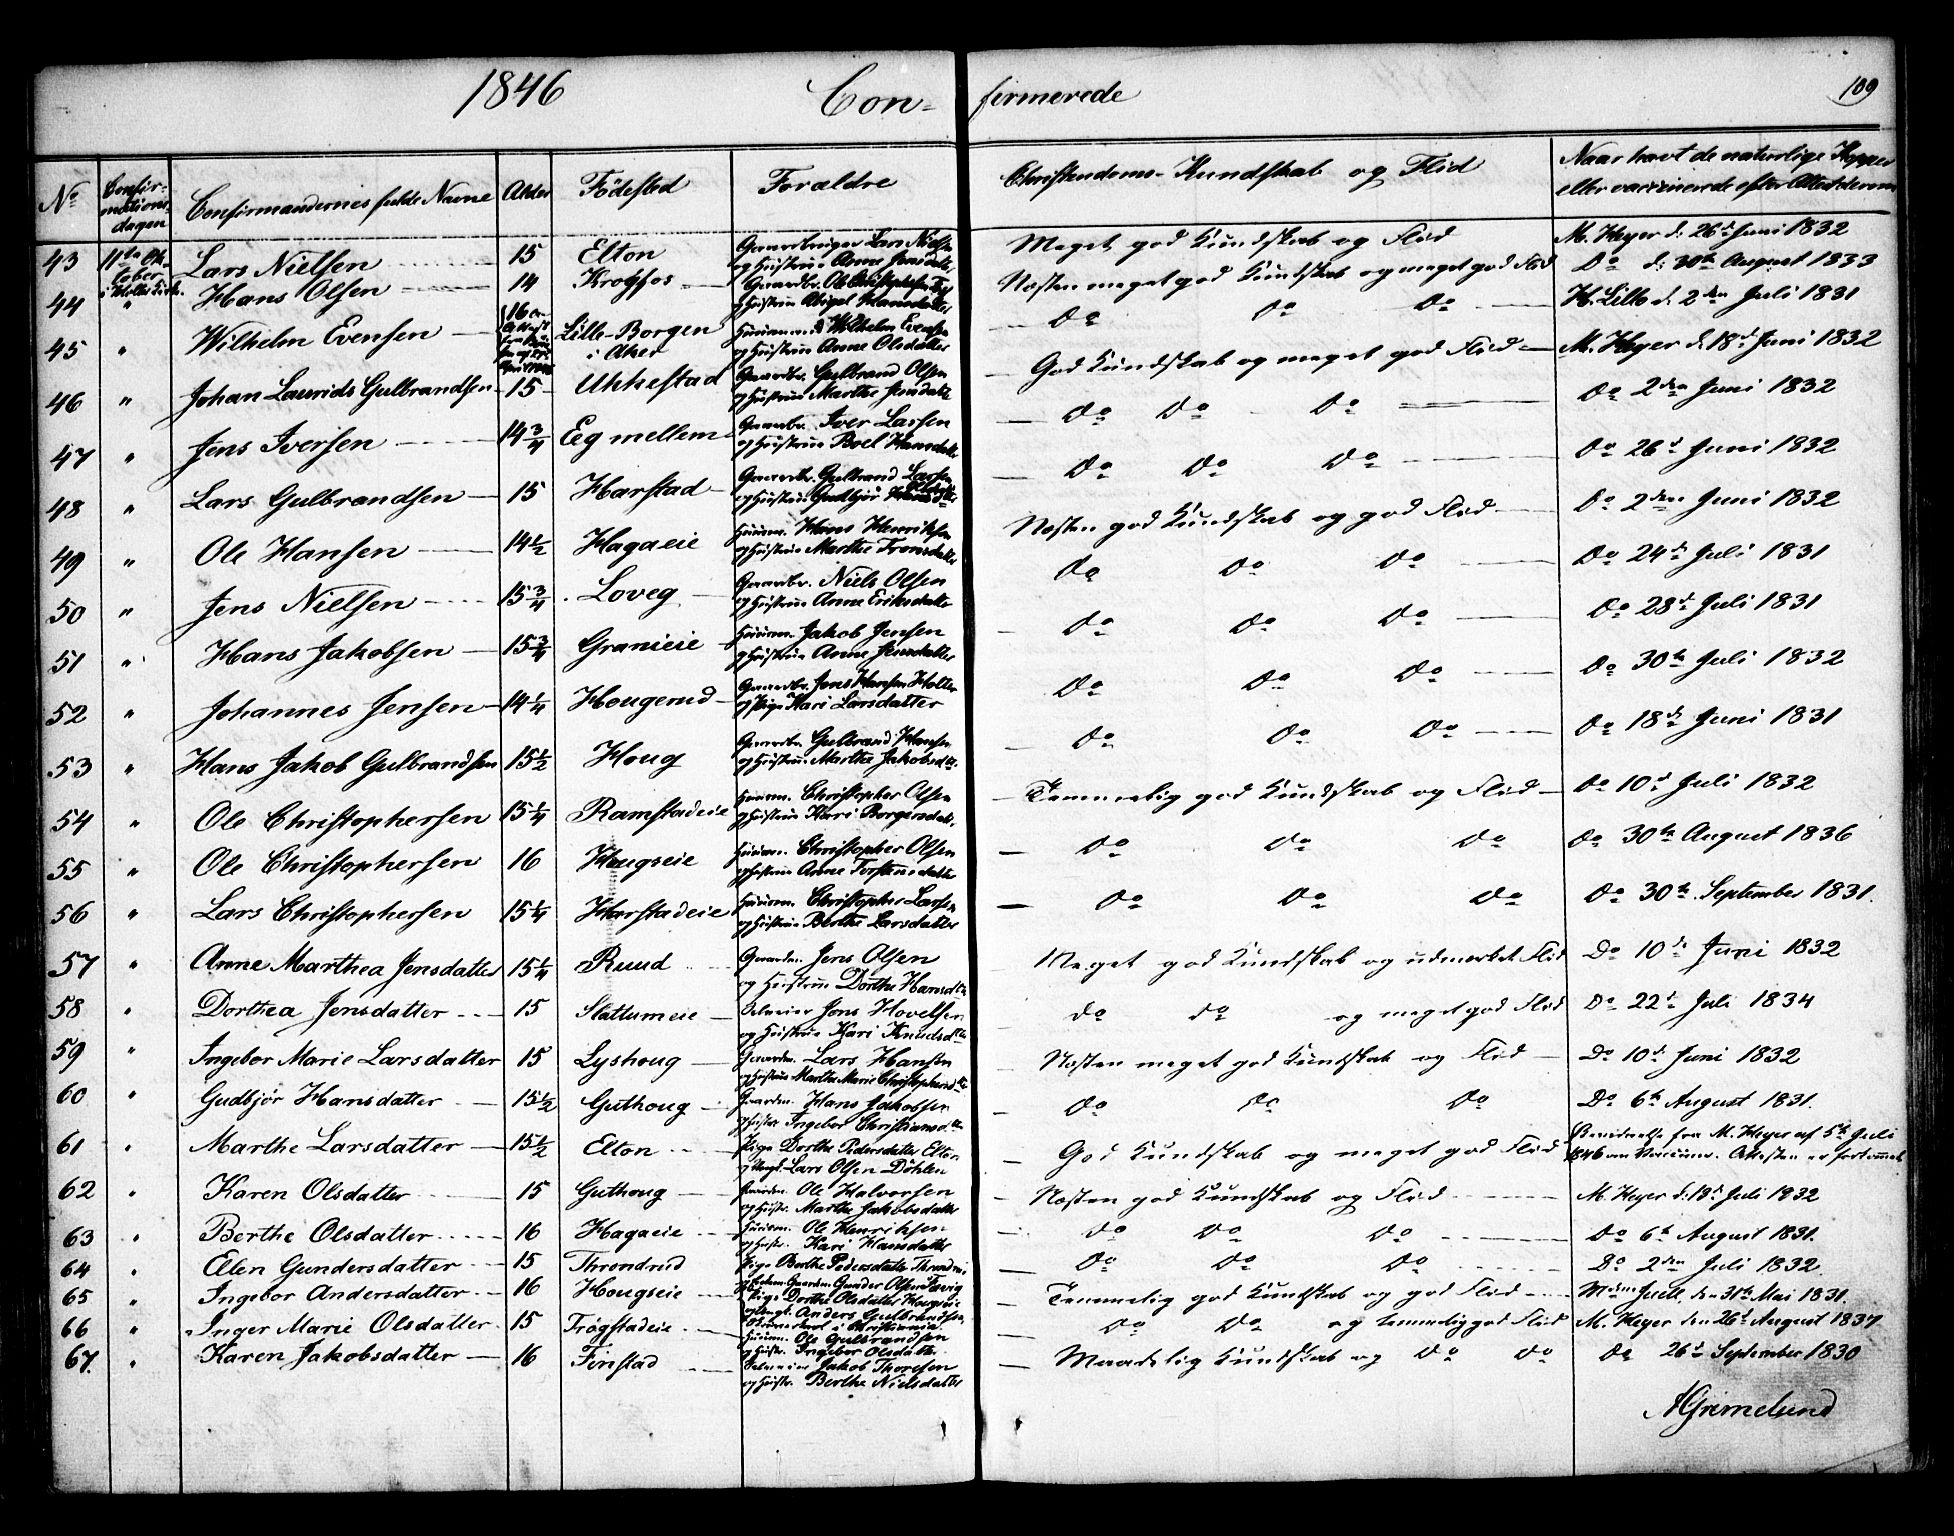 1846 Con- firmerede 109
No Confirmationsdagen Confirmandernes fulde Navne Alder Fødested Forældre Christendoms-Kundskab og Flid Naar havt de naturlige Kopper eller vaccinerede efter Attest derom
43 11te October Lars Nielsen 15 Elton Gaardbruger Lars Nielsen og Hustrue Anne Jensdatter Meget god Kundskab og Flid M. Heyer d. 26d Juni 1832
44 " Hans Olsen 14 Krogfos Gaardbr. Ole Christophersen og Hustrue Abigel Hansdatter Næsten meget god Kundskab og meget god Flid Do d. August 1833
45 " Wilhelm Evensen 16 Lille-Borgen i Aker Huusmand Wilhelm Evensen og Hustrue Anne Olsdatter Do Do Do H. Lille d. 2den Juli 1831
46 " Johan Laurids Gulbrandsen 15 Ukkestad Gaardbr. Gulbrand Olsen og Hustrue Marthe Jensdatter God Kundskab og meget god Flid M. Heyer d. 18d Juni 1832
47 " Jens Iversen 14 3/4 Eeg mellem Gaardbr. Iver Larsen og Hustrue Boel Hansdatter Do Do Do Do 2den Juni 1832
48 " Lars Gulbrandsen 15 Harstad Gaardbr. Gulbrand Larsen og Hustrue Gudbjør Do Do Do Do 26d Juni 1832
49 " Ole Hansen 14 1/2 Hagaeie Huusm. Hans Henriksen og Hustrue Marthe Næsten god Kundskab og god Flid Do 2den Juni 1832
50 " Jens Nielsen 15 3/4 Loveg Gaardbr. Niels Olsen og Hustrue Anne Eriksdatter Do Do Do Do 24d Juli 1831
51 " Hans Jakobsen 15 3/4 Granieie Huusm. Jakob Jensen og Hustrue Anne Jensdatter Do Do Do Do 28d Juli 1831
52 " Johannes Jensen 14 1/4 Hougerud Gaardbr. Jens Hansen Holter og Pige Kari Larsdatter Do Do Do Do 30th Juli 1832
53 " Hans Jakob Gulbrandsen 15 1/2 Houg Gaardbr. Gulbrand Hansen og Hustrue Marthe Jakobsdtr. Do Do Do Do 18d Juni 1831
54 " Ole Christophersen 15 1/4 Ramstadeie Huusm. Christopher Olsen og Hustrue Kari Borgersdatr. Temmelig god Kundskab og Flid Do 10d Juli 1832
55 " Ole Christophersen 16 Hougseie Huusm. Christopher Olsen og Hustrue Anne Torstensdatter Do Do Do Do 30th August 1836
56 " Lars Christophersen 15 1/4 Harstadeie Huusm. Christopher Larsen og Hustrue Berthe Larsdatter Do Do Do Do 30th September 1831.
57 " Anne Marthea Jensdatter 15 1/4 Ruud Gaardm. Jens Olsen og Hustrue Dorthe Hansdtr Meget god Kundskab og udmærket Flid Do 10d Juni 1832
58 " Dorthea Jensdatter 15 Slattumeie Selveier Jens Hovelsen og Hustrue Kari Knudsdtr Do Do og meget god Flid Do 22d Juli 1834
59 " Ingebor Marie Larsdatter 15 Lyshoug Gaardm. Lars Hansen og Hustrue Marthe Marie Christophersdtr Næsten meget god Kundskab og Flid Do 10d Juni 1832
60 " Gudbjør Hansdatter 15 1/2 Guthoug Gaardm. Hans Jakobsen og Hustr. Ingebor Christiansdtr Do Do Do Do 6th August 1831.
61 " Marthe Larsdatter 15 1/2 Elton Pige Dorthe Pedersdatter Elton og Ungk. Lars Olsen Döhlen God Kundskab og meget god Flid fra M. Heyer af 5th Juli 1846 om Vaccine. Attesten er
62 " Karen Olsdatter 15 Guthoug Gaardm. Ole Halvorsen og Hustr. Marthe Jakobsdatter Næsten god Kundskab og Flid M. Heyer d. 19d Juli 1832
63 " Berthe Olsdatter 16 Hagaeie Huusm. Ole Henriksen og Hustr. Kari Hansdatter Do Do Do Do 6th August 1831.
64 " Elen Gundersdatter 15 Throndrud Pige Berthe Pedersdatter Gaardm. Gunder Olsen Do Do Do Do 2den Juli 1832.
65 " Ingebor Andersdatter 16 Hougseie Pige Dorthe Olsdatter Hougseie og Ungk. Anders Gulbrandsen i Christiania Temmelig god Kundskab og god Flid Juell, den 31th Mai 1831.
66 " Inger Marie Olsdatter 15 Trøgstadeie Huusm. Ole Gulbrandsen og Hustr. Ingebor Olsdatter Do Do og temmelig god Flid M. Heyer den 26d August 1837
67. " Karen Jakobsdatter 16 Finstad Selveier Jakob Thoresen og Hustr. Berthe Nielsdatter Maadelig Kundskab og Do Do Do 26d September 1830
AGrimelund